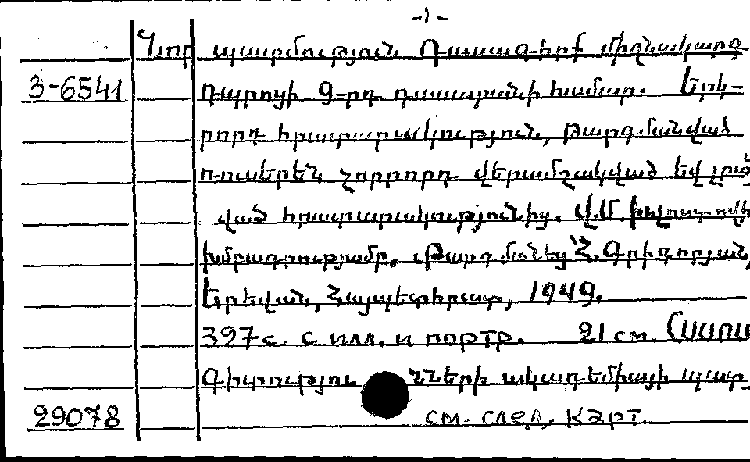 -1-
Նոր պատմություն Դասագիրք միջնակարգ
3-6541 դպրոցի 9-րդ դասարանի համար. Երկ-
րորդ հրատարակություն, թարգմանված
ռուսերեն չորրորդ վերամշակված եվ լրաց
ված հրատարակությունից. Վ.Մ.
խմբագրությամբ. Թարգմանեց Հ. Գրիգորյան,
Երեվան, Հայպետհրատ, 1949.
397 с. с илл. и портр. 21 см. (ՍՍՌՄ
Գիտությու նների ակադեմիայի պատ
29078 см. след. карт.